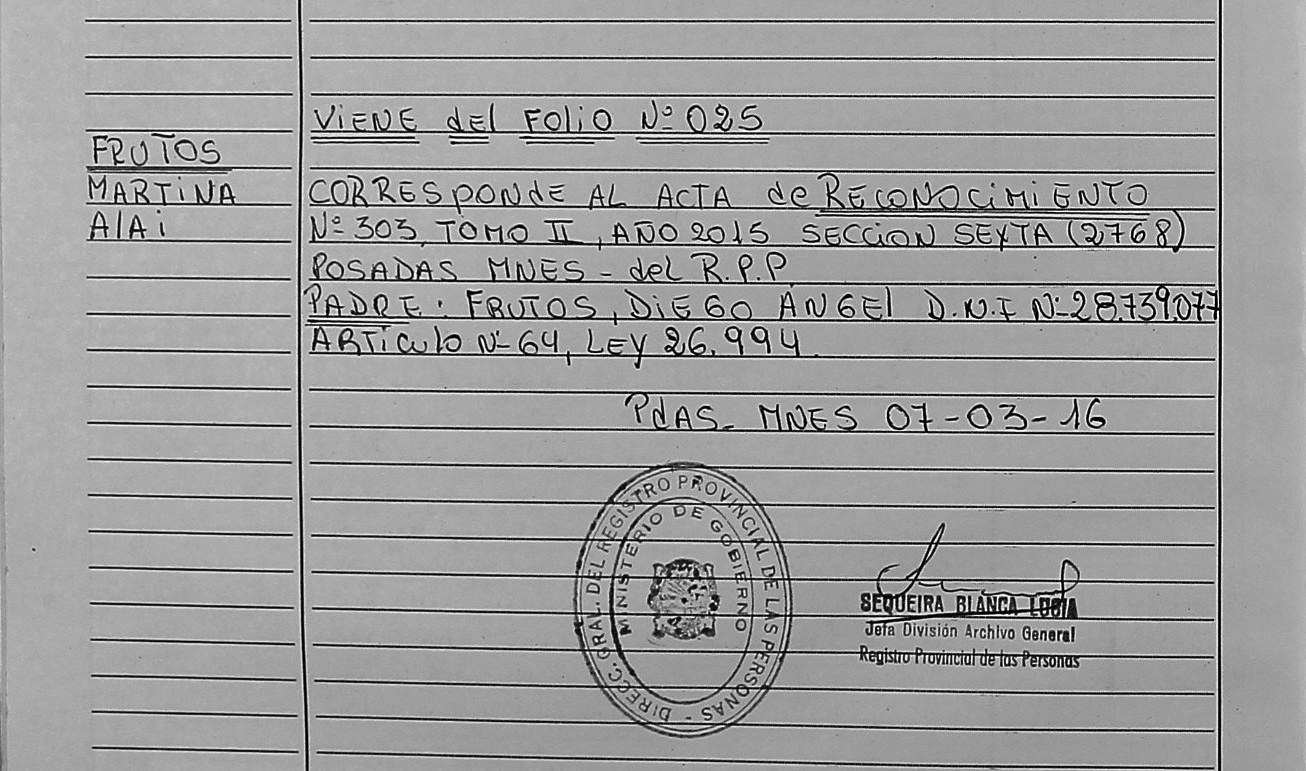 VIENE del FOLIO Nº 025
FRUTOS
MARTINA
AlAi
CORRESPONdE AL ACTA de RECONOCIMIENTO
Nº 303, TOMO II, AÑO 2015 SECCION SEXTA (2768)
POSADAS MNES - del R.P.P
PADRE: FRUTOS, DIEGO ANGEl D.N.I Nº 28.739.077
ARTICULO Nº 64, LEY 26.994.
PdAS- MNES 07-03-16
DIRECC. GRAL. DEL REGISTRO PROVINCIAL DE LAS PERSONAS -
MINISTERIO DE GOBIERNO
SEQUEIRA BLANCA LUCIA
Jefa División Archivo General
Registro Provincial de las Personas